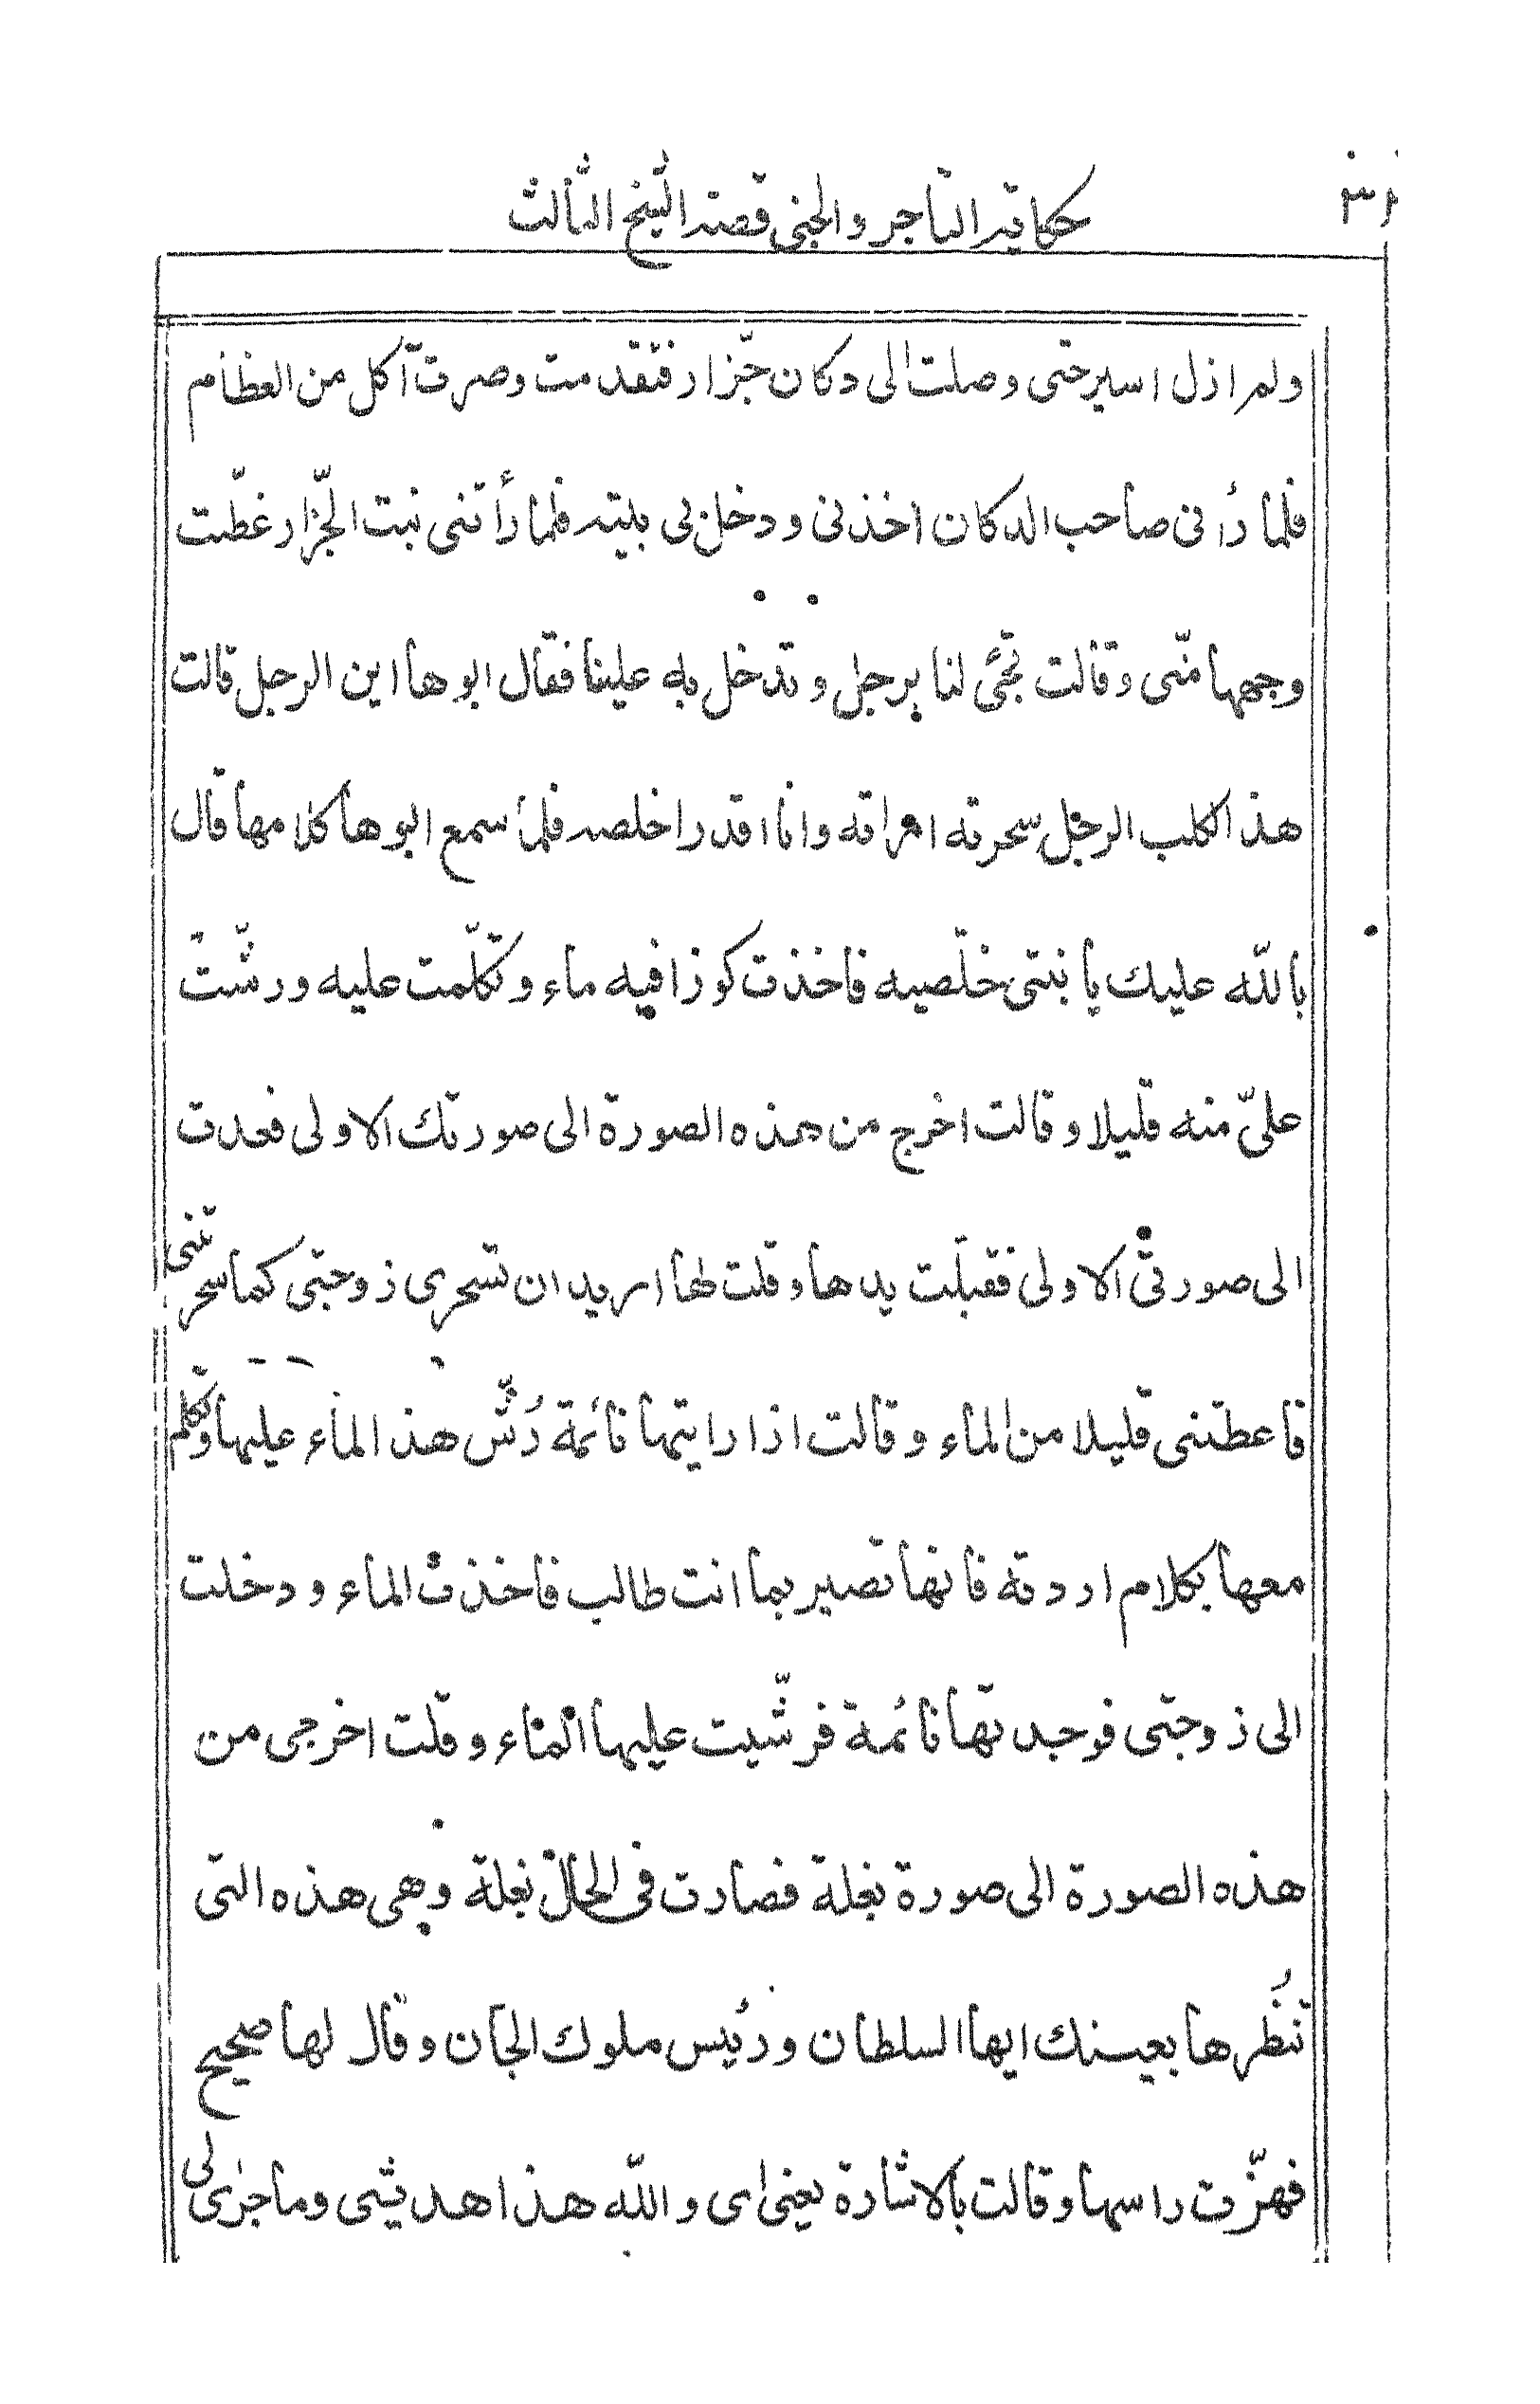 حكاية التاجر والجني قصة الشيخ الثالث
ولم ازل اسير حتى وصلت الى دكان جزّار فتقدمت وصرت آكل من العظام
فلما رأنى صاحب الدكان اخذنى ودخل بى بيته فلما رأتنى بنت الجزّار غطّت
وجهها منّى وقالت تجئى لنا برجل وتدخل به علينا فقال ابوها اين الرجل قالت
هذا الكلب الرجل سحرته امراته وانا اقدر اخلصه فلما سمع ابوها كلامها قال
بالله عليك يا بنتى خلّصيه فاخذت كوزا فيه ماء وتكلّمت عليه ورشّت
علىّ منه قليلا وقالت اخرج من هذه الصورة الى صورتك الاولى فعدت
الى صورتى الاولى فقبلّت يدها وقلت لها اريد ان تسحرى زوجتى كما سحرتنى
فاعطتنى قليلا من الماء وقالت اذا رايتها نائمة رُشّ هذا الماء عليها وتكلم
معها بكلام اردته فانها تصير بما انت طالب فاخذت الماء ودخلت
الى زوجتى فوجدتها نائمة فرشّيت عليها الماء وقلت اخرجى من
هذه الصورة الى صورة بغلة فصارت فى الحال بغلة وهى هذه التى
تنظُرها بعينك ايها السلطان ورئيس ملوك الجان وقال لها صحيح
فهزّت راسها وقالت بالاشارة يعنى اى والله هذا حديثى وما جرى لى